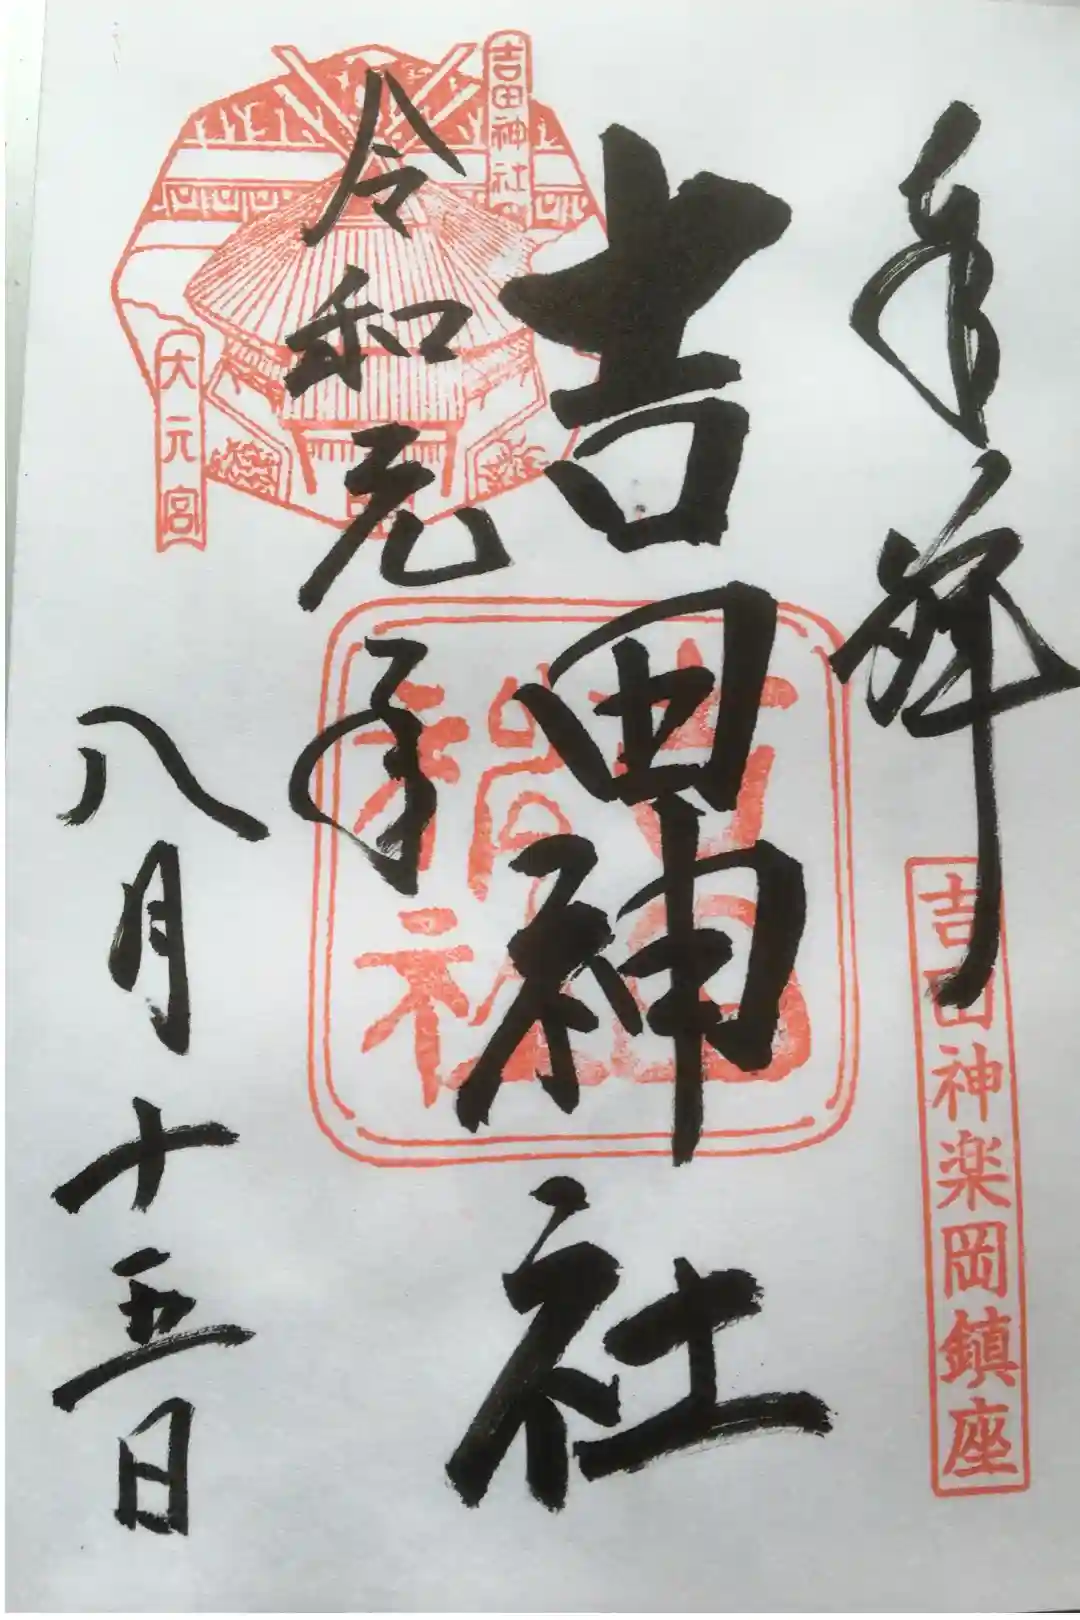 奉拝
吉田神楽岡鎮座
吉田神社
吉田
神社
令和元年
八月十五日
吉田神社
大元宮